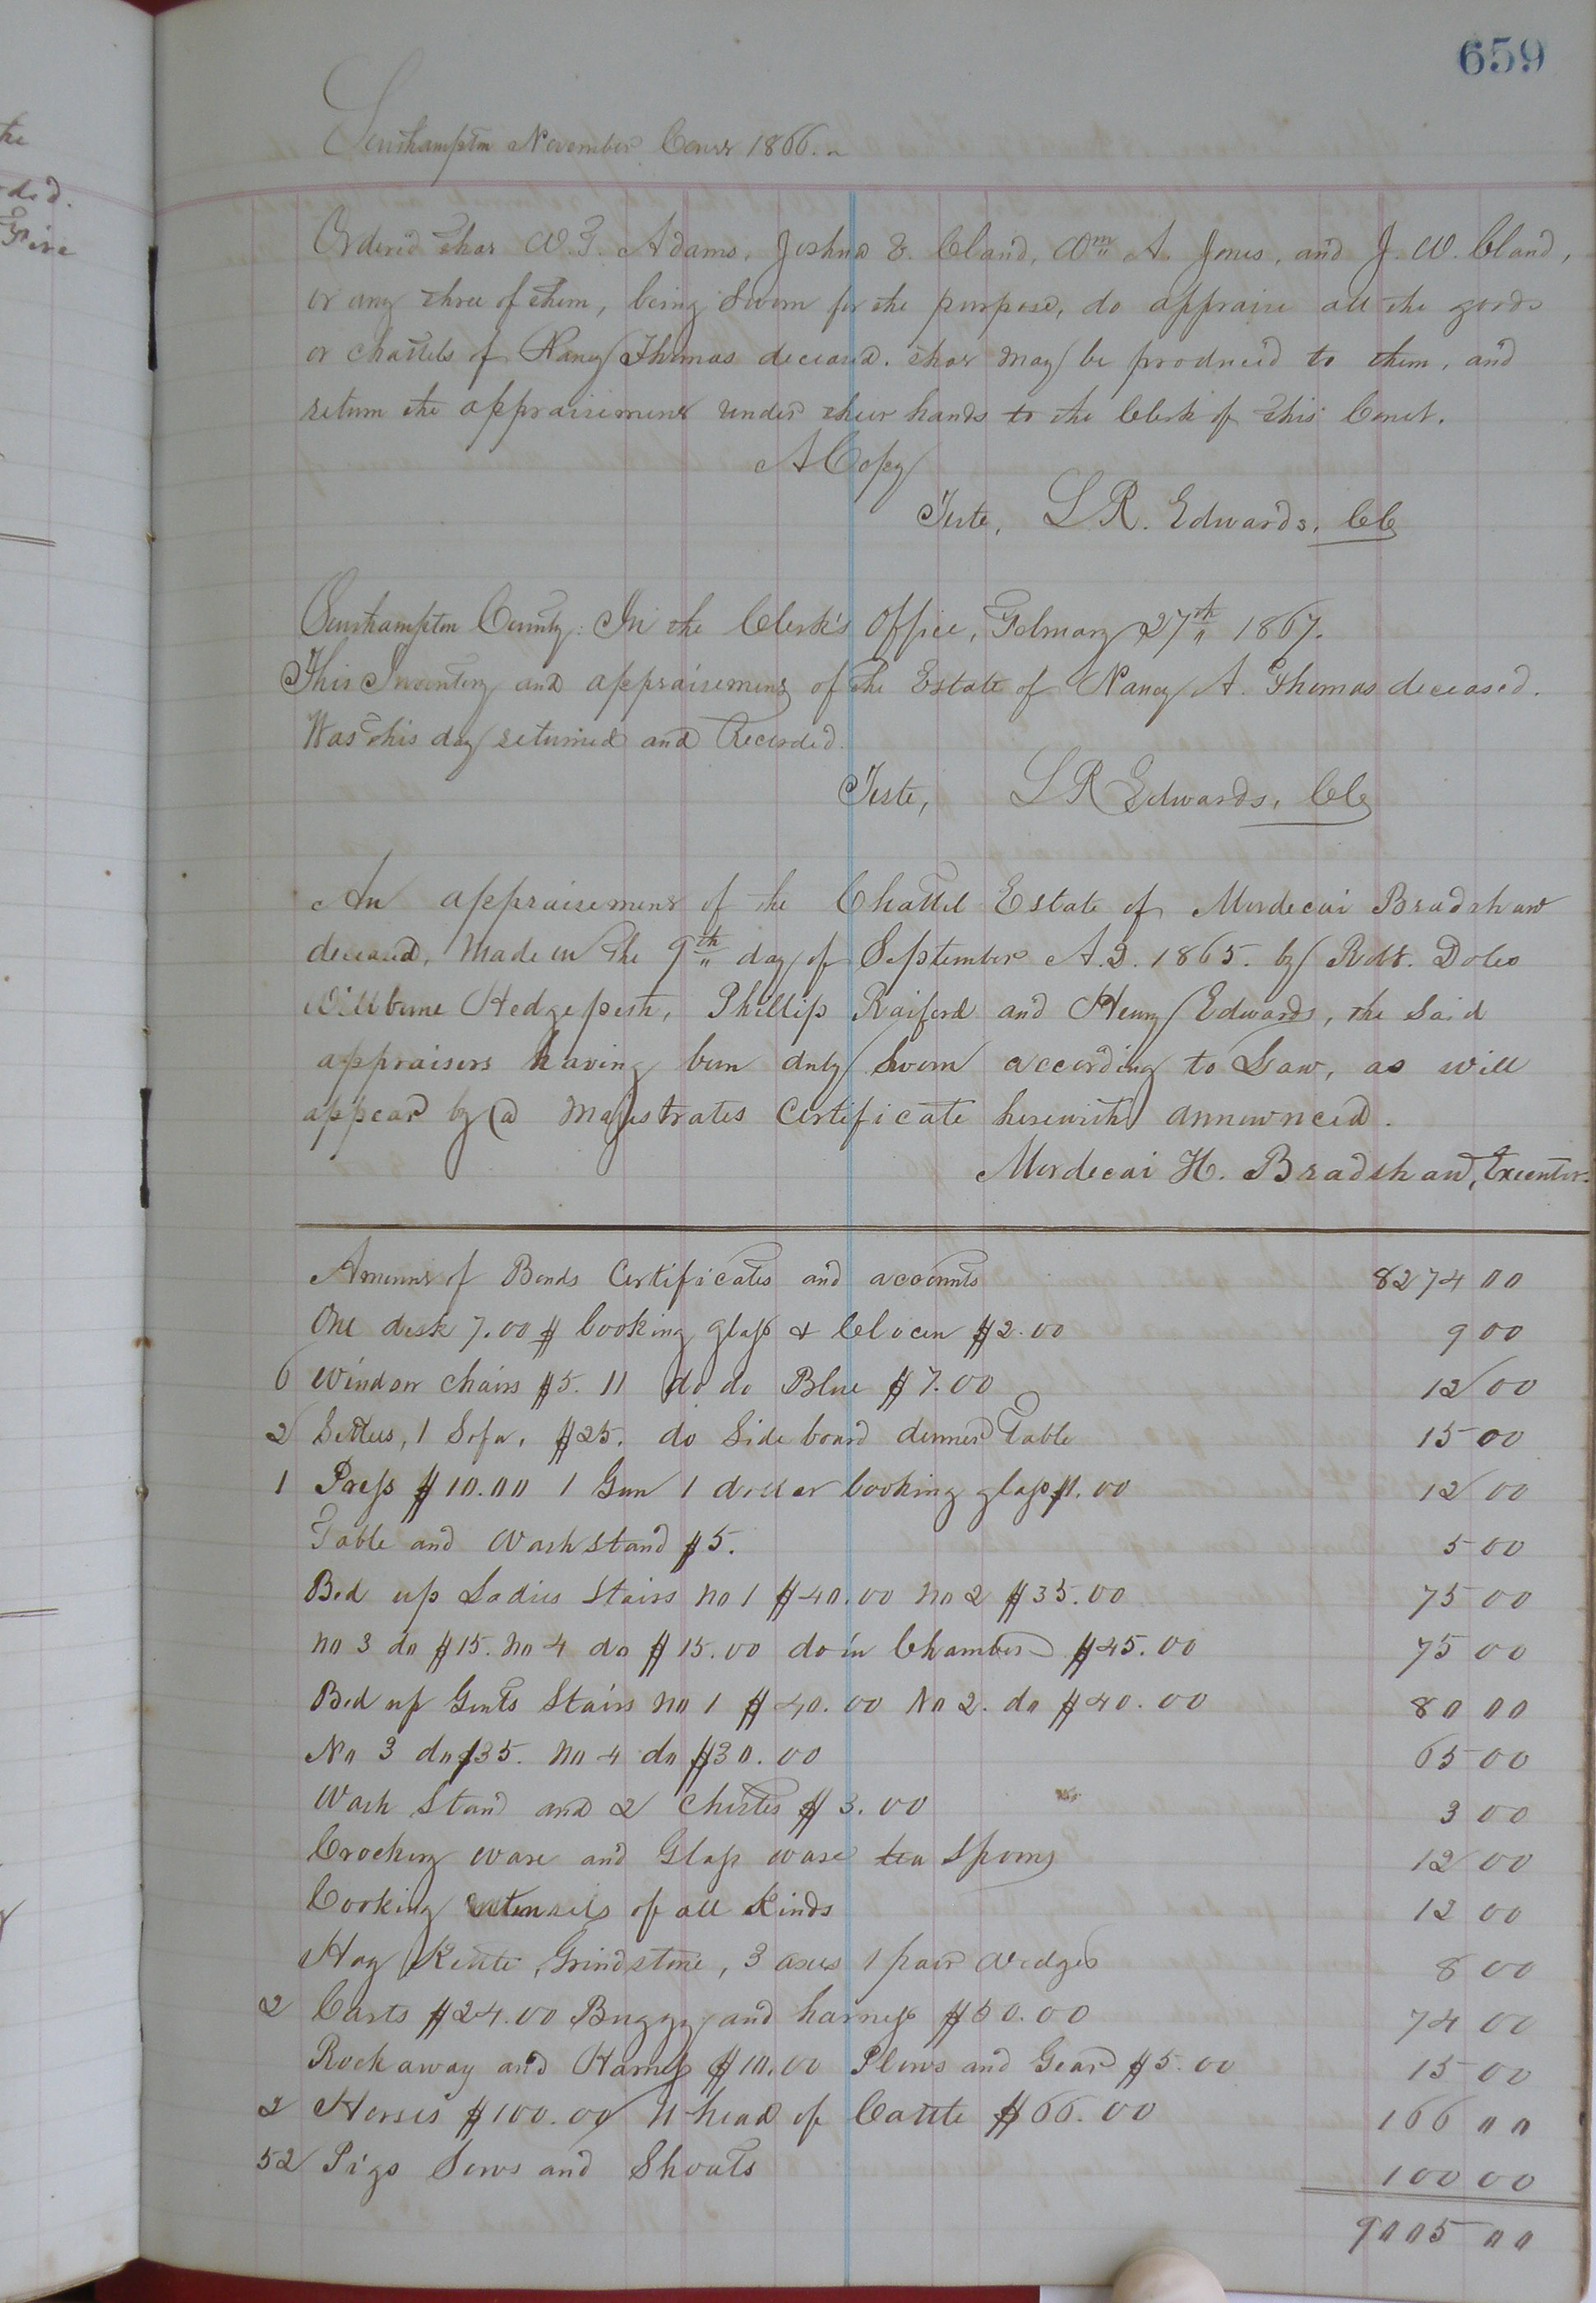 the
ded.
Five
659
Southampton November Court 1866.
Ordered that W. T. Adams, Joshua E. Cland, Wm A. Jones, and J. W. Cland,
or any three of them, being Sworn for the purpose, do appraise all the goods
or chattels of Nancy Thomas deceased. that may be produced to them, and
return the appraisement under their hands to the Clerk of this Court.
A Copy
Teste, L R. Edwards, CC
Southampton County: In the Clerk's Office, February 27th 1867.
This Inventory and appraisement of the Estate of Nancy A. Thomas deceased.
Was this day returned and Recorded.
Teste, L R Edwards, CC
An appraisement of the Chattel Estate of Mordecai Bradshaw
deceased, Made on the 9th day of September A.D. 1865. by Robt. Doles
Willborne Hedgepeth, Phillip Raiford and Henry Edwards, the Said
appraisers having been duly Sworn according to Law, as will
appear by a Majistrates Certificate herewith announced.
Mordecai H. Bradshaw, Executor.
Amount of Bonds Certificates and accounts 8274 00
One desk 7.00 $ looking glass & Clocen $2.00 9 00
6 Windsor chairs $5. 11 do do Blue $7.00 12 00
2 Settees, 1 Sofa, $25. do Side board dinner Table 15 00
1 Press $10.00 1 Gun 1 dollar looking glass $1.00 12 00
Table and Wash stand $5. 5 00
Bed up Ladies Stairs no 1 $40.00 no 2 $35.00 75 00
no 3 do $15. no 4 do $15.00 do in Chamber $45.00 75 00
Bed up Gents Stairs no 1 $40.00 No 2. do $40.00 80 00
No 3 do $35. no 4 do $30.00 65 00
Wash Stand and 2 Chests $3.00 3 00
Crockery ware and Glass ware tea Spoons 12 00
Cooking utensils of all Kinds 12 00
Hay Grindstone, 3 axes 1 pair wedges 8 00
2 Carts $24.00 Buggy and harness $50.00 74 00
Rockaway and Harness $10.00 Plows and Gear $5.00 15 00
2 Horses $100.00 11 head of Cattle $66.00 166 00
52 Pigs Sows and Shoats 100 00
9005 00